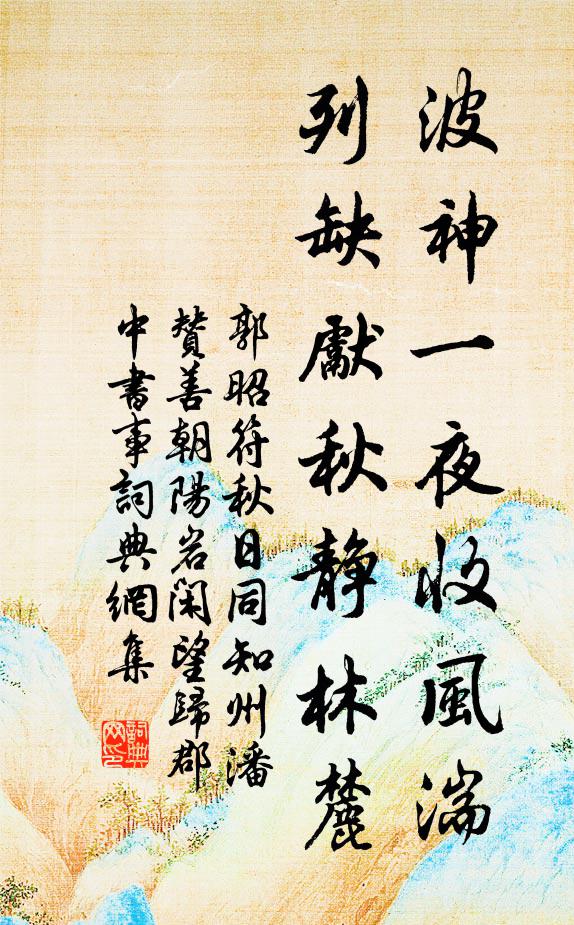 波神一夜收風湍
列缺獻秋静林麓
郭昭符秋日同知州潘
賛善朝陽岩闲望歸郡
中書事詞典網集
詞典網印